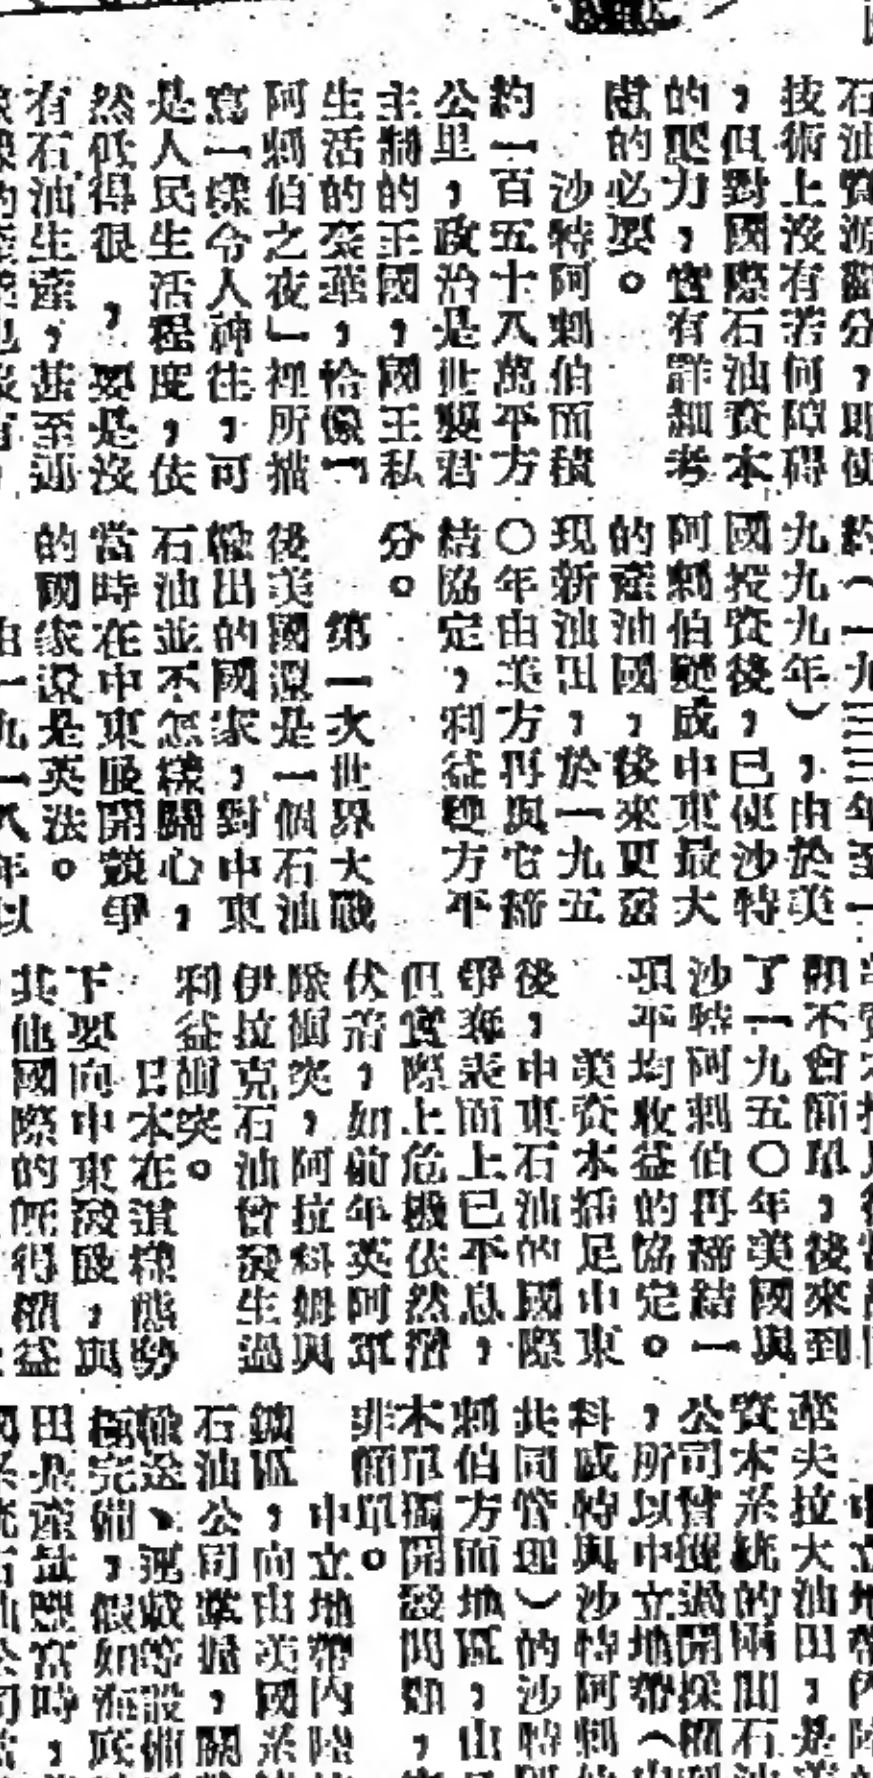 石油資源
技術上沒有若何障碍
，但對國際石油資本
的壓力，實有詳細考
慮的必要。
沙特阿剌伯面積
約一百五十八萬平方
公里，政治是世襲君
主制的王國，國王私
生活的奢華，恰像「
阿剌伯之夜」裡所描
寫一樣令人神往，可
是人民生活程度，依
然低得很，要是沒
有石油生產，甚至連
約（一九三三年至一
九九九年），由於美
國投資後，已使沙特
阿剌伯變成中東最大
的產油國，後來更發
現新油田，於一九五
〇年由美方再與它締
結協定，利益雙方平
分。
第一次世界大戰
後美國還是一個石油
輸出的國家，對中東
石油並不怎樣關心，
當時在中東展開競爭
的國家還是英法。
由一九一八年以
類不會簡單，後來到
了一九五〇年美國與
沙特阿剌伯再締結一
項平均收益的協定。
美資本插足中東
後，中東石油的國際
爭奪表面上已平息，
但實際上危機依然潛
伏着，如前年英阿軍
隊衝突，阿拉科姆與
伊拉克石油曾發生過
利益衝突。
日本在這樣態勢
下要向中東發展，與
其他國際的既得權益
華夫拉大油田，是
資本系統的兩間石
公司曾經過開採
，所以中立地帶（
科威特與沙特阿剌
共同管理）的沙特
剌伯方面地區，由
本單獨開發問題，
非簡單。
中立地帶內陸
鑛區，向由美國系
石油公司掘，關
輸送、運載等設備
極完備，假如海底
田是產量豐富時，